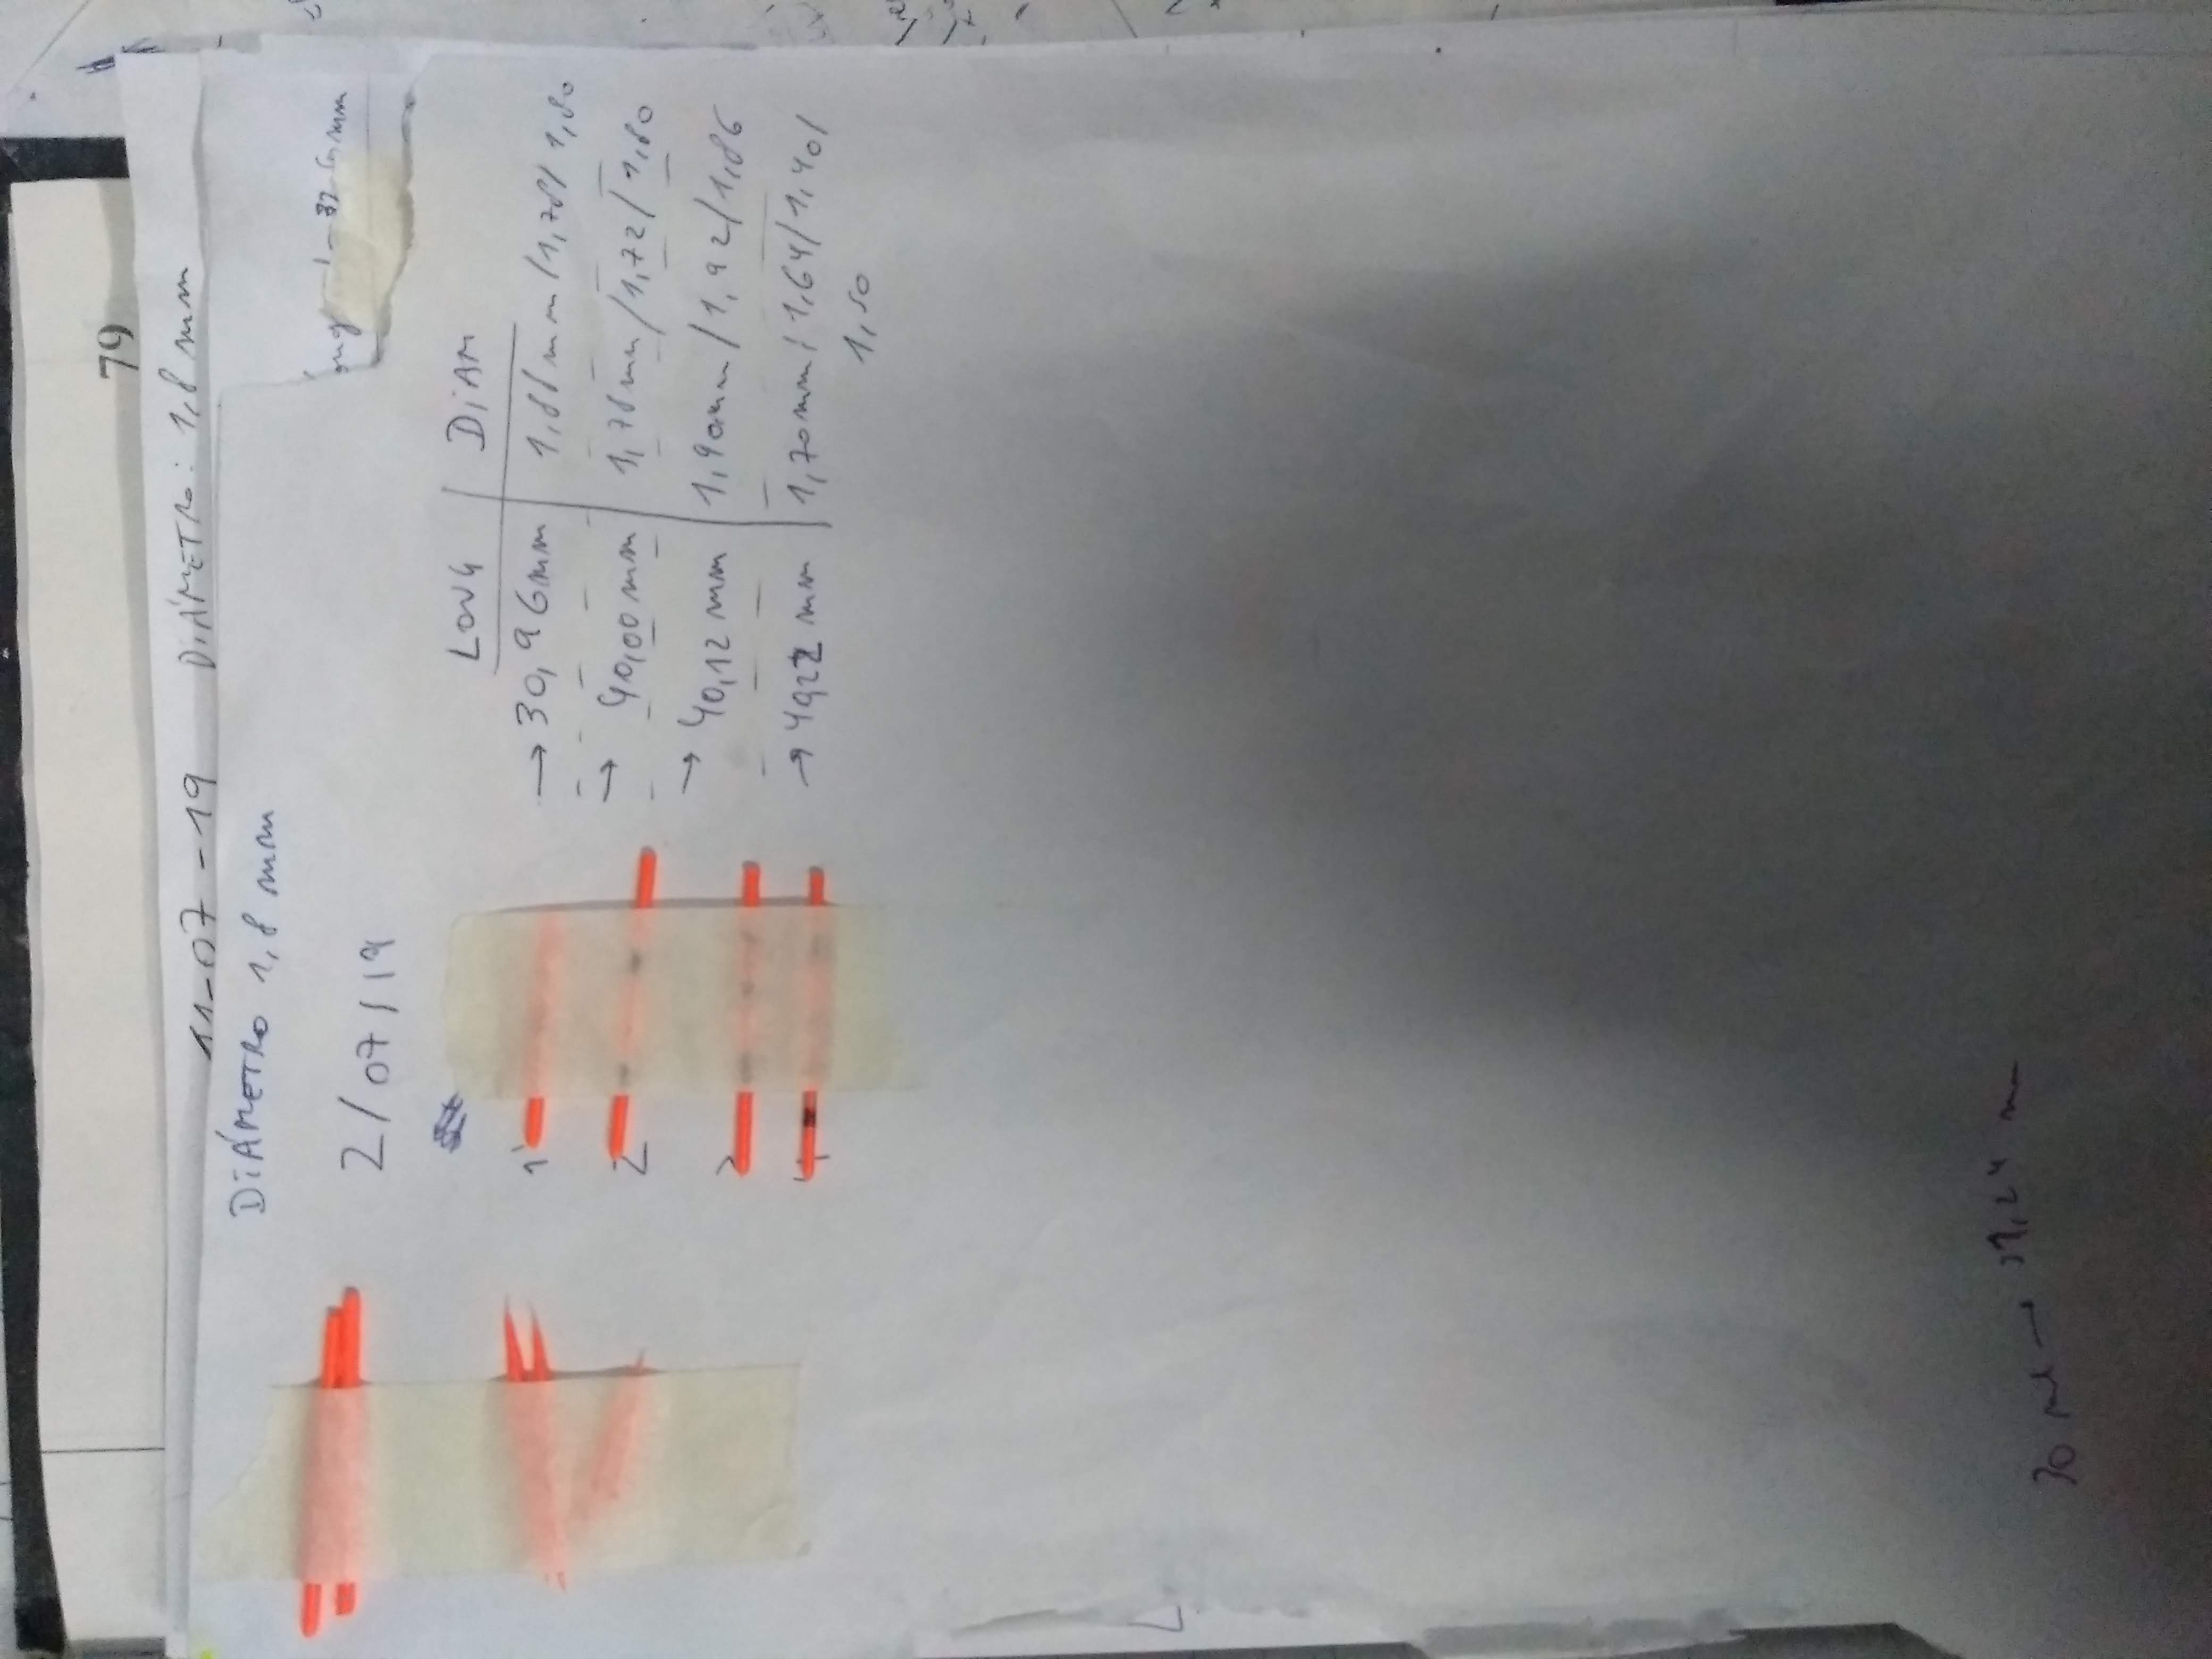 79
11-07-19 DIÁMETRO: 1,8 mm
DIÁMETRO 1,8 mm
2/07/19
LONG DIAM
1 → 30,96mm 1,81mm/1,78/1,80
2 → 40,00mm 1,78mm/1,72/1,80
3 → 40,12mm 1,90mm/1,92/1,86
4 → mm 1,70mm/1,64/1,40/
1,50